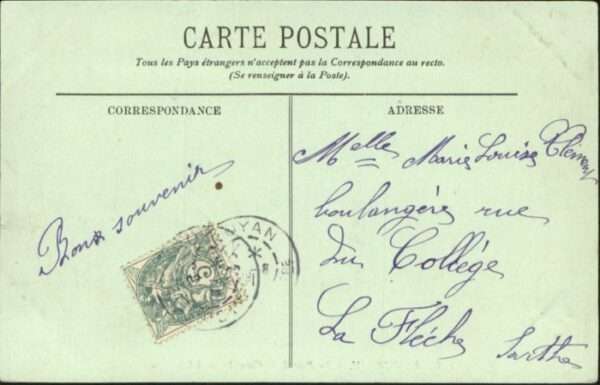 CARTE POSTALE
Tous les Pays étrangers n'acceptent pas la Correspondance au recto.
(Se renseigner à la Poste).
CORRESPONDANCE
Bons souvenirs
ADRESSE
Melle Marie Louise Clément
boulangère rue
du Collège
La Flèche Sarthe